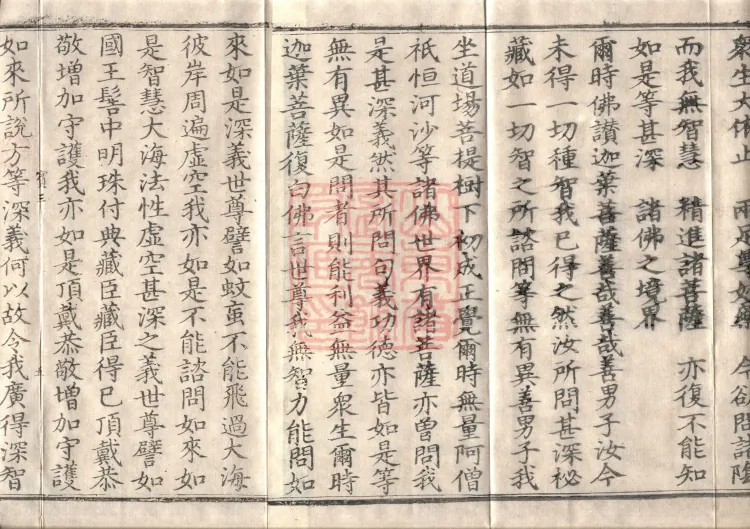 而我無智慧　精進諸菩薩　亦復不能知
如是等甚深　諸佛之境界
爾時佛讃迦葉菩薩善哉善哉善男子汝今
未得一切種智我已得之然汝所問甚深秘
藏如一切智之所諮問等無有異善男子我
坐道場菩提樹下初成正覺爾時無量阿僧
祇恒河沙等諸佛世界有諸菩薩亦曽問我
是甚深義然其所問句義功德亦皆如是等
無有異如是問者則能利益無量衆生爾時
迦葉菩薩復白佛言世尊我無智力能問如
來如是深義世尊譬如蚊䖟不能飛過大海
彼岸周遍虛空我亦如是不能諮問如來如
是智慧大海法性虛空甚深之義世尊譬如
國王髻中明珠付典藏臣藏臣得已頂戴恭
敬增加守護我亦如是頂戴恭敬增加守護
如來所說方等深義何以故令我廣得深智